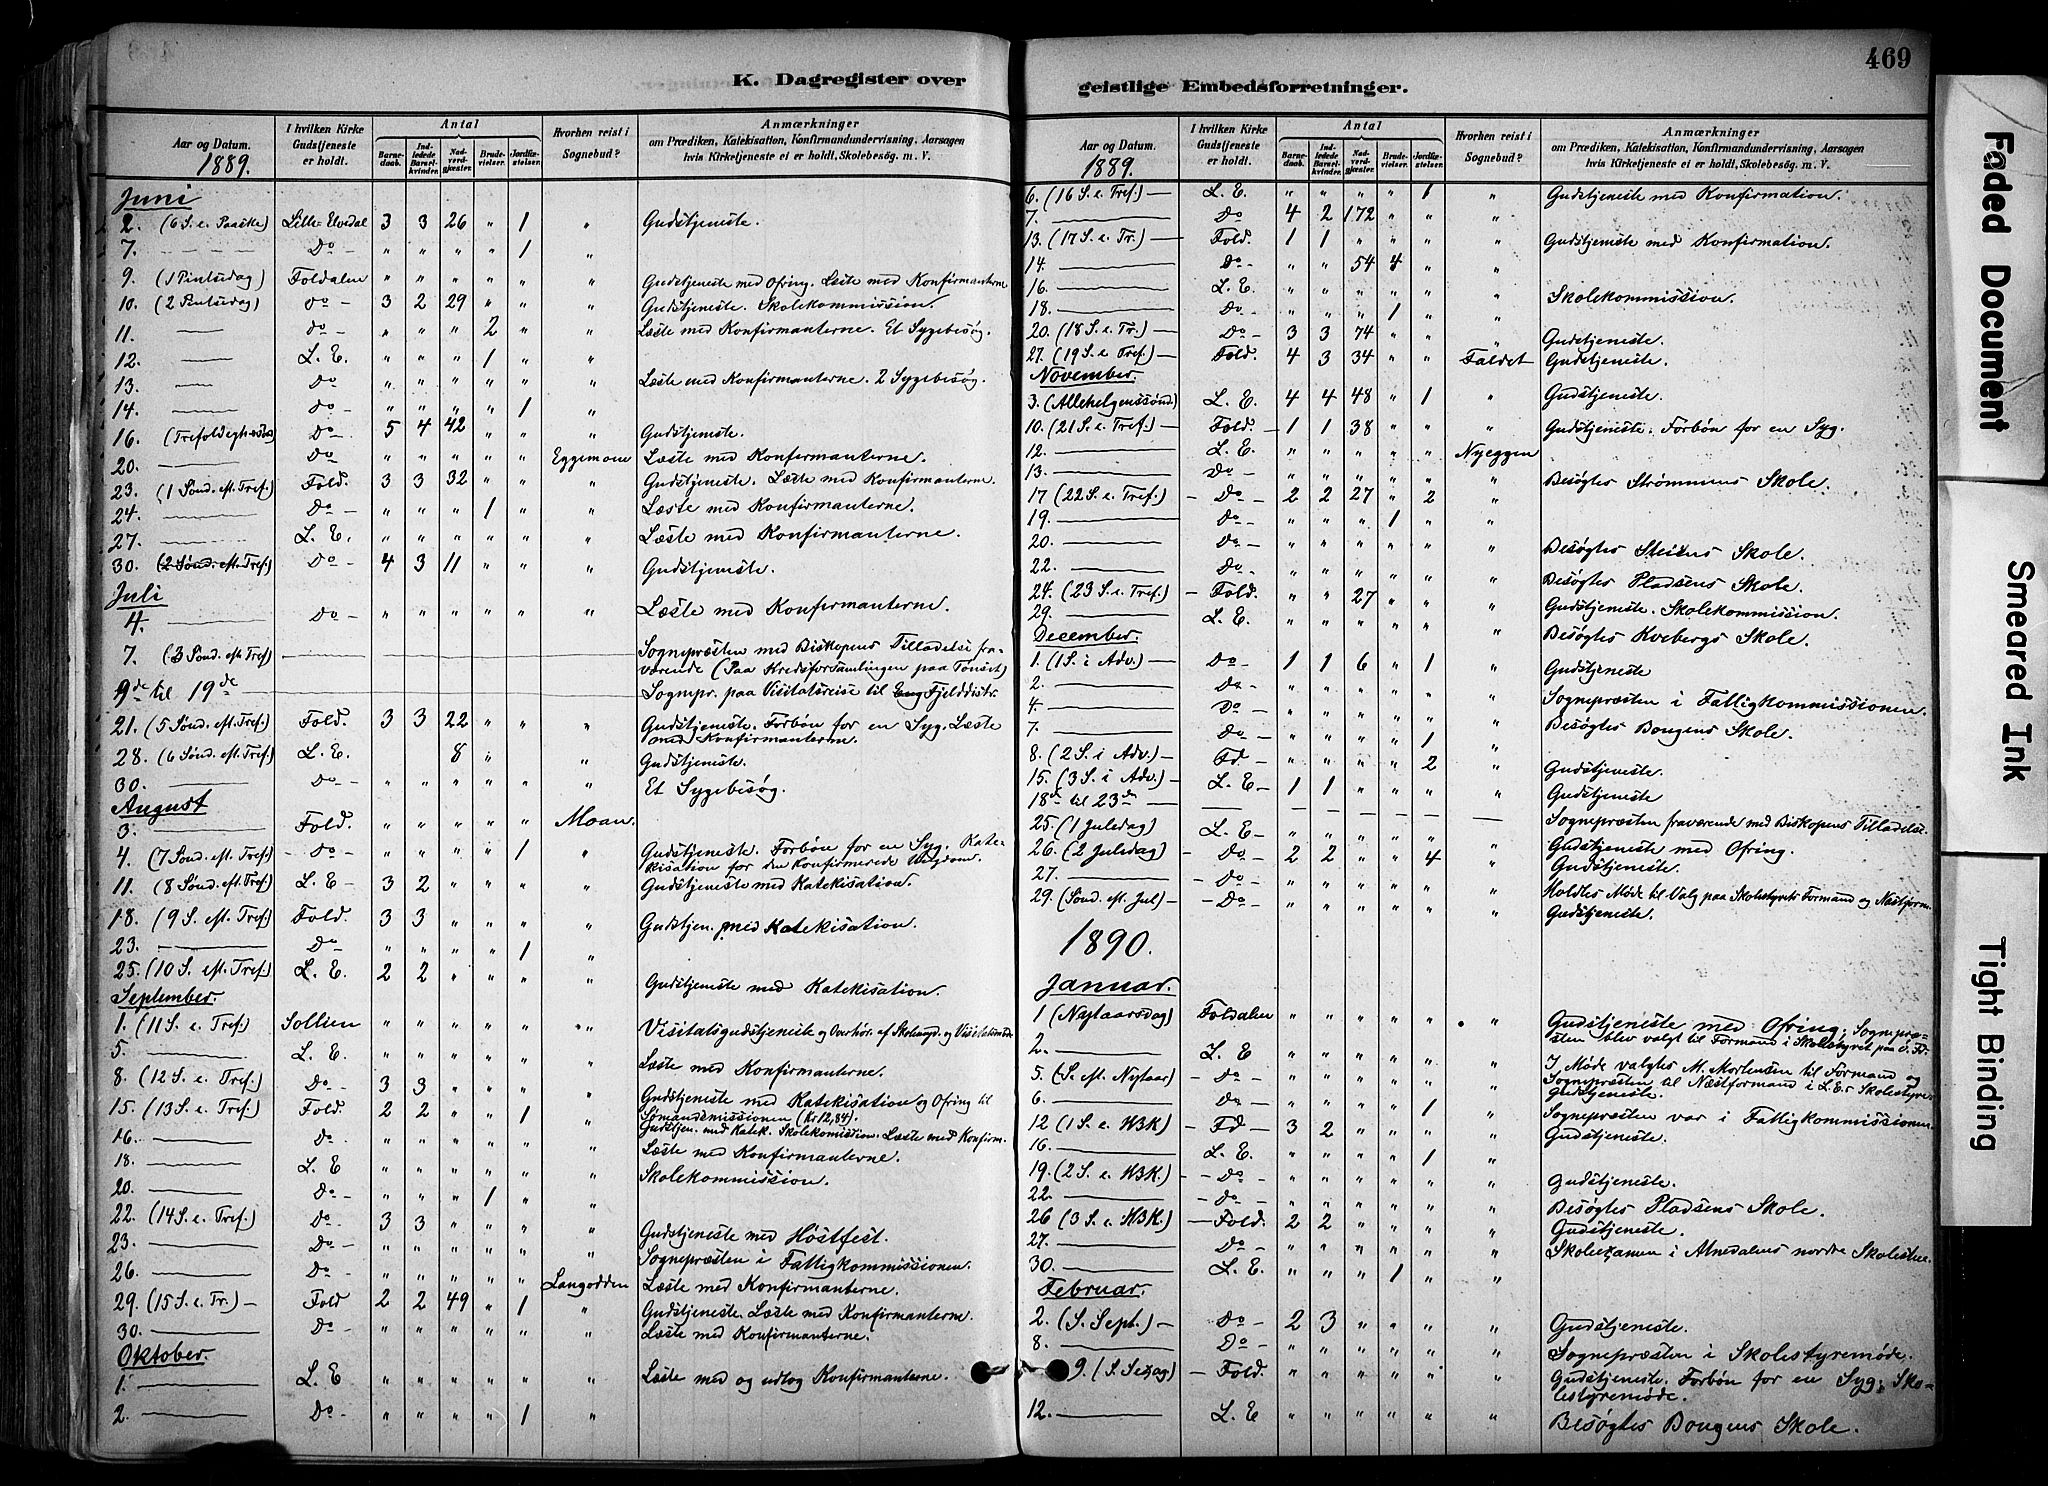 K. Dagregister over
Aar og Datum.
1889.
I hvilken Kirke Gudstjeneste er holdt.
Antal
Barnedaab. Indledede Barselkvinder. Nadverdgjæster. Brudevielser. Jordfæstelser.
Hvorhen reist i Sognebud?
Anmærkninger
om Prædiken, Katekisation, Konfirmandundervisning, Aarsagen
hvis Kirketjeneste ei er holdt, Skolebesøg. m. V.
Juni
2. (6 S. e. Paaske) Lille Elvedal 3 3 26 " 1 " Gudstjeneste.
7. Do " " " " 1 "
9. (1 Pintsdag) Foldalen " " " " " " Gudstjeneste med Ofring. Læste med Konfirmanterne
10. (2 Pintsdag) do 3 2 29 " " " Gudstjeneste. Skolekommission.
11. do " " " 2 " " Læste med Konfirmanterne. Et Sygebesøg.
12. L. E. " " " 1 " "
13. Do " " " " " " Læste med Konfirmanterne. 2 Sygebesøg.
14. do " " " " 1 "
16. Do 5 4 42 " " " Gudstjeneste.
20. Do " " " " " Eggemoen Læste med Konfirmanterne.
23. (1 Sønd. eft. Tref.) Fold. 3 3 32 " " " Gudstjeneste. Læste med Konfirmanterne.
24. Do " " " 1 " " Læste med Konfirmanterne.
27. L. E. " " " " " " Læste med Konfirmanterne.
30. (2 Sønd. eft. Tref.) Do 4 3 11 " " " Gudstjeneste.
Juli
4. Do " " " " " " Læste med Konfirmanterne.
7. (3 Sønd. eft. Tref) Sognepræsten med Biskopens Tilladelse fra-
værende (Paa Kredsforsamlingen paa Tønset)
9de til 19de Sognepr. paa Visitatsreise til Fjelddistr.
21. (5 Sønd. eft. Tref.) Fold. 3 3 22 " " " Gudstjeneste. Forbøn for en Syg. Læste
med Konfirmanterne.
28. (6 Sønd. eft. Tref.) L. E. 8 " " Gudstjeneste.
30. Do " " " " " " Et Sygebesøg.
August
3. Fold. " " " " " Moan.
4. (7 Sønd. eft. Tref) Do " " " " 1 " Gudstjeneste. Forbøn for en Syg. Kate-
kisation for den Konfirmerede Ungdom.
11. (8 Sønd. eft. Tref) L. E 3 2 " " " " Gudstjeneste med Katekisation.
18. (9 S. eft. Tref.) Fold. 3 3 " " " " Gudstjen. med Katekisation.
23. Do " " " " 1 "
25. (10 S. eft. Tref.) L. E. 2 2 " " " " Gudstjeneste med Katekisation.
September.
1. (11 S. e. Tref.) Sollien " " " " " " Visitatsgudstjeneste og Overhør. af Skoleungd. og Visitatsmøde
5. L. E. " " " " " " Læste med Konfirmanterne.
8. (12 S. e. Tref.) Do 3 3 " " " " Gudstjeneste med Katekisation og Ofring til
Sømandsmissionen (Kr 12,84).
15. (13 S. e. Tref.) Fold. 2 2 " " 1 " Gudstjen. med Katek. Skolekomission. Læste med Konfirm.
16. Do " " " " " " Læste med Konfirmanterne.
18. L. E " " " " " " Skolekommission.
20. Do " " " 1 " "
22. (14 S. e. Tref.) Do 3 3 " " " " Gudstjeneste med Høstfest.
23. Do " " " " " " Sognepræsten i Fattigkommissionen.
26. Do " " " " " Langodden Læste med Konfirmanterne.
29. (15 S. e. Tr.) Fold 2 2 49 " 1 " Gudstjeneste. Læste med Konfirmanterne.
30. Do " " " " " " Læste med Konfirmanterne.
Oktober.
1. L. E " " " " " " Læste med og udtog Konfirmanterne.
2. Do " " " " 1 "
469
geistlige Embedsforretninger.
Aar og Datum.
1889.
I hvilken Kirke Gudstjeneste er holdt.
Antal
Barnedaab. Indledede Barselkvinder. Nadverdgjæster. Brudevielser. Jordfæstelser.
Hvorhen reist i Sognebud?
Anmærkninger
om Prædiken, Katekisation, Konfirmandundervisning, Aarsagen
hvis Kirketjeneste ei er holdt, Skolebesøg. m. V.
6. (16 S. e. Tref.) L. E. " " " " 1 " Gudstjeneste med Konfirmation.
7. Do 4 2 172 " " "
13. (17 S. e. Tr.) Fold. 1 1 " " " " Gudstjeneste med Konfirmation.
14. Do " " 54 " "
16. L. E. " " " " " " Skolekommission.
18. Do " " " 1 " "
20. (18 S. e. Tr.) Do 3 3 74 " " " Gudstjeneste.
27. (19 S. e. Tref.) Fold. 4 3 34 " " Faldet Gudstjeneste.
November.
3. (Allehelgenssønd.) L. E. 4 4 48 " 1 " Gudstjeneste.
10. (21 S. e. Tref.) Fold. 1 1 38 " " " Gudstjeneste. Forbøn for en Syg.
12. L. E. " " " " " Nyeggen
13. Do " " " " " " Besøgtes Strømmens Skole.
17 (22 S. e. Tref.) Do 2 2 27 " 2 "
19. Do " " " 1 " "
20. Do " " " " " " Besøgtes Steiens Skole.
22. Do " " " " " " Besøgtes Pladsens Skole.
24. (23 S. e. Tref.) Fold. " " 27 " " " Gudstjeneste. Skolekommission.
29. L. E. " " " " " " Besøgtes Kvebergs Skole.
December.
1. (1 S. i Adv.) Do 1 1 6 " 1 " Gudstjeneste
2. Do " " " " " " Sognepræsten i Fattigkommissionen.
4. Do " " " " " " Besøgtes Bongens Skole.
7. Do " " " " 1 "
8. (2 S. i Adv.) Fd " " " " 2 " Gudstjeneste.
15. (3 S. i Adv.) L. E 1 1 " " " " Gudstjeneste
18de til 23de Sognepræsten fraværende med Biskopens Tilladelse.
25. (1 Juledag) L. E " " " " " " Gudstjeneste med Ofring.
26. (2 Juledag) Do 2 2 " " 4 " Gudstjeneste.
27. Do " " " " " " Holdtes Møde til Valg paa Skolestyrets Formand og Næstform.
29. (Sønd. eft. Jul) Do " " " " " " Gudstjeneste.
1890.
Januar.
1 (Nytaarsdag) Foldalen " " " " " " Gudstjeneste med Ofring; Sognepræ-
sten blev valgt til Formand i Skolestyret paa Fd.
2. L. E " " " " " " I Møde valgtes M. Mortensen til Formand og
Sognepræsten til Næstformand i L. E.s Skolestyre
5. (S. eft. Nytaar) Do " " " " " " Gudstjeneste.
6. Do " " " " 1 " Sognepræsten var i Fattigkommissionen.
12 (1 S. e. H3K) Fd 3 2 " " " " Gudstjeneste.
16. L. E. " " " " 1 "
19. (2 S. e. H3K.) Do " " " " " " Gudstjeneste.
22. Do " " " " " " Besøgtes Pladsens Skole.
26 (3 S. e. H3K.) Fold. 2 2 " " " " Gudstjeneste.
27. Do " " " " " " Skoleexamen i Atnedalens nordre Skolestue.
30. L. E. " " " 1 " "
Februar.
2. (S. Sept.) Do 2 3 " " " " Gudstjeneste.
8. Do " " " " " " Sognepræsten i Skolestyremøde.
9. (S. Sexag) Fold. " " " " " " Gudstjeneste. Forbøn for en Syg; Sko-
lestyremøde.
12. L. E " " " " " " Besøgtes Bongens Skole.
Faded Document
Smeared Ink
Tight Binding